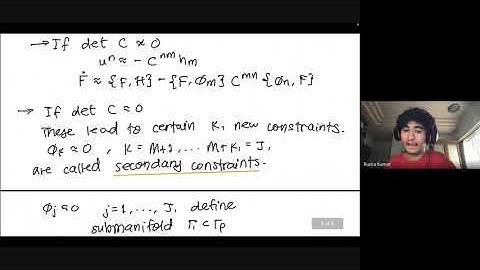 → If det C ≉ 0
uⁿ ≈ - Cⁿᵐ hₘ
Ḟ ≈ {F, H} - {F, ϕₘ} Cᵐⁿ {ϕₙ, F}
→ If det C ≈ 0
These lead to certain K₁ new constraints.
ϕₖ ≈ 0 , K = M+1, ... M+K₁ = J,
are called secondary constraints.
ϕⱼ ≈ 0 j = 1, ..., J, define
submanifold Γ₁ ⊂ Γₚ